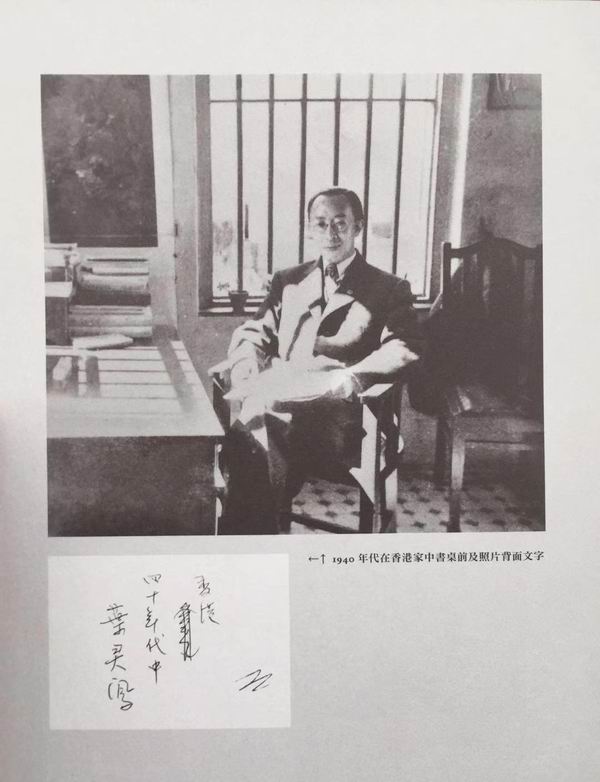 ←↑ 1940 年代在香港家中書桌前及照片背面文字
香港
四十年代中
葉灵鳳